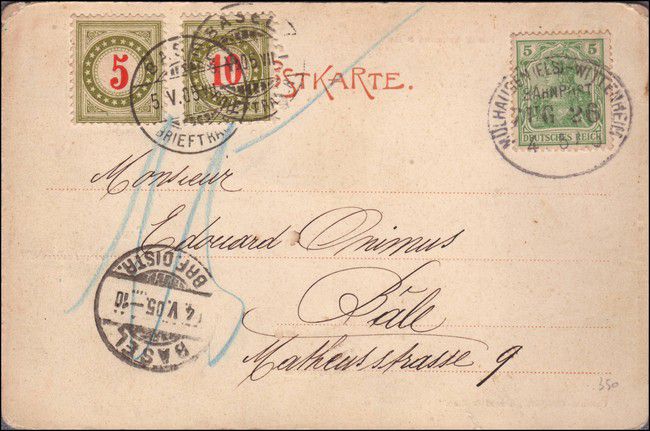 5
10
POSTKARTE.
5
DEUTSCHES REICH
MÜLHAUSEN (ELS)-WITTENHEIM
BAHNPOST
ZUG 26
4 5
BASEL
5.V.05
BRIEFTRÄG
BASEL
Monsieur
Edouard Onimus
Bâle
Matheusstrasse 9
BASEL
4.V.05.-10
BRF.DISTR.
350